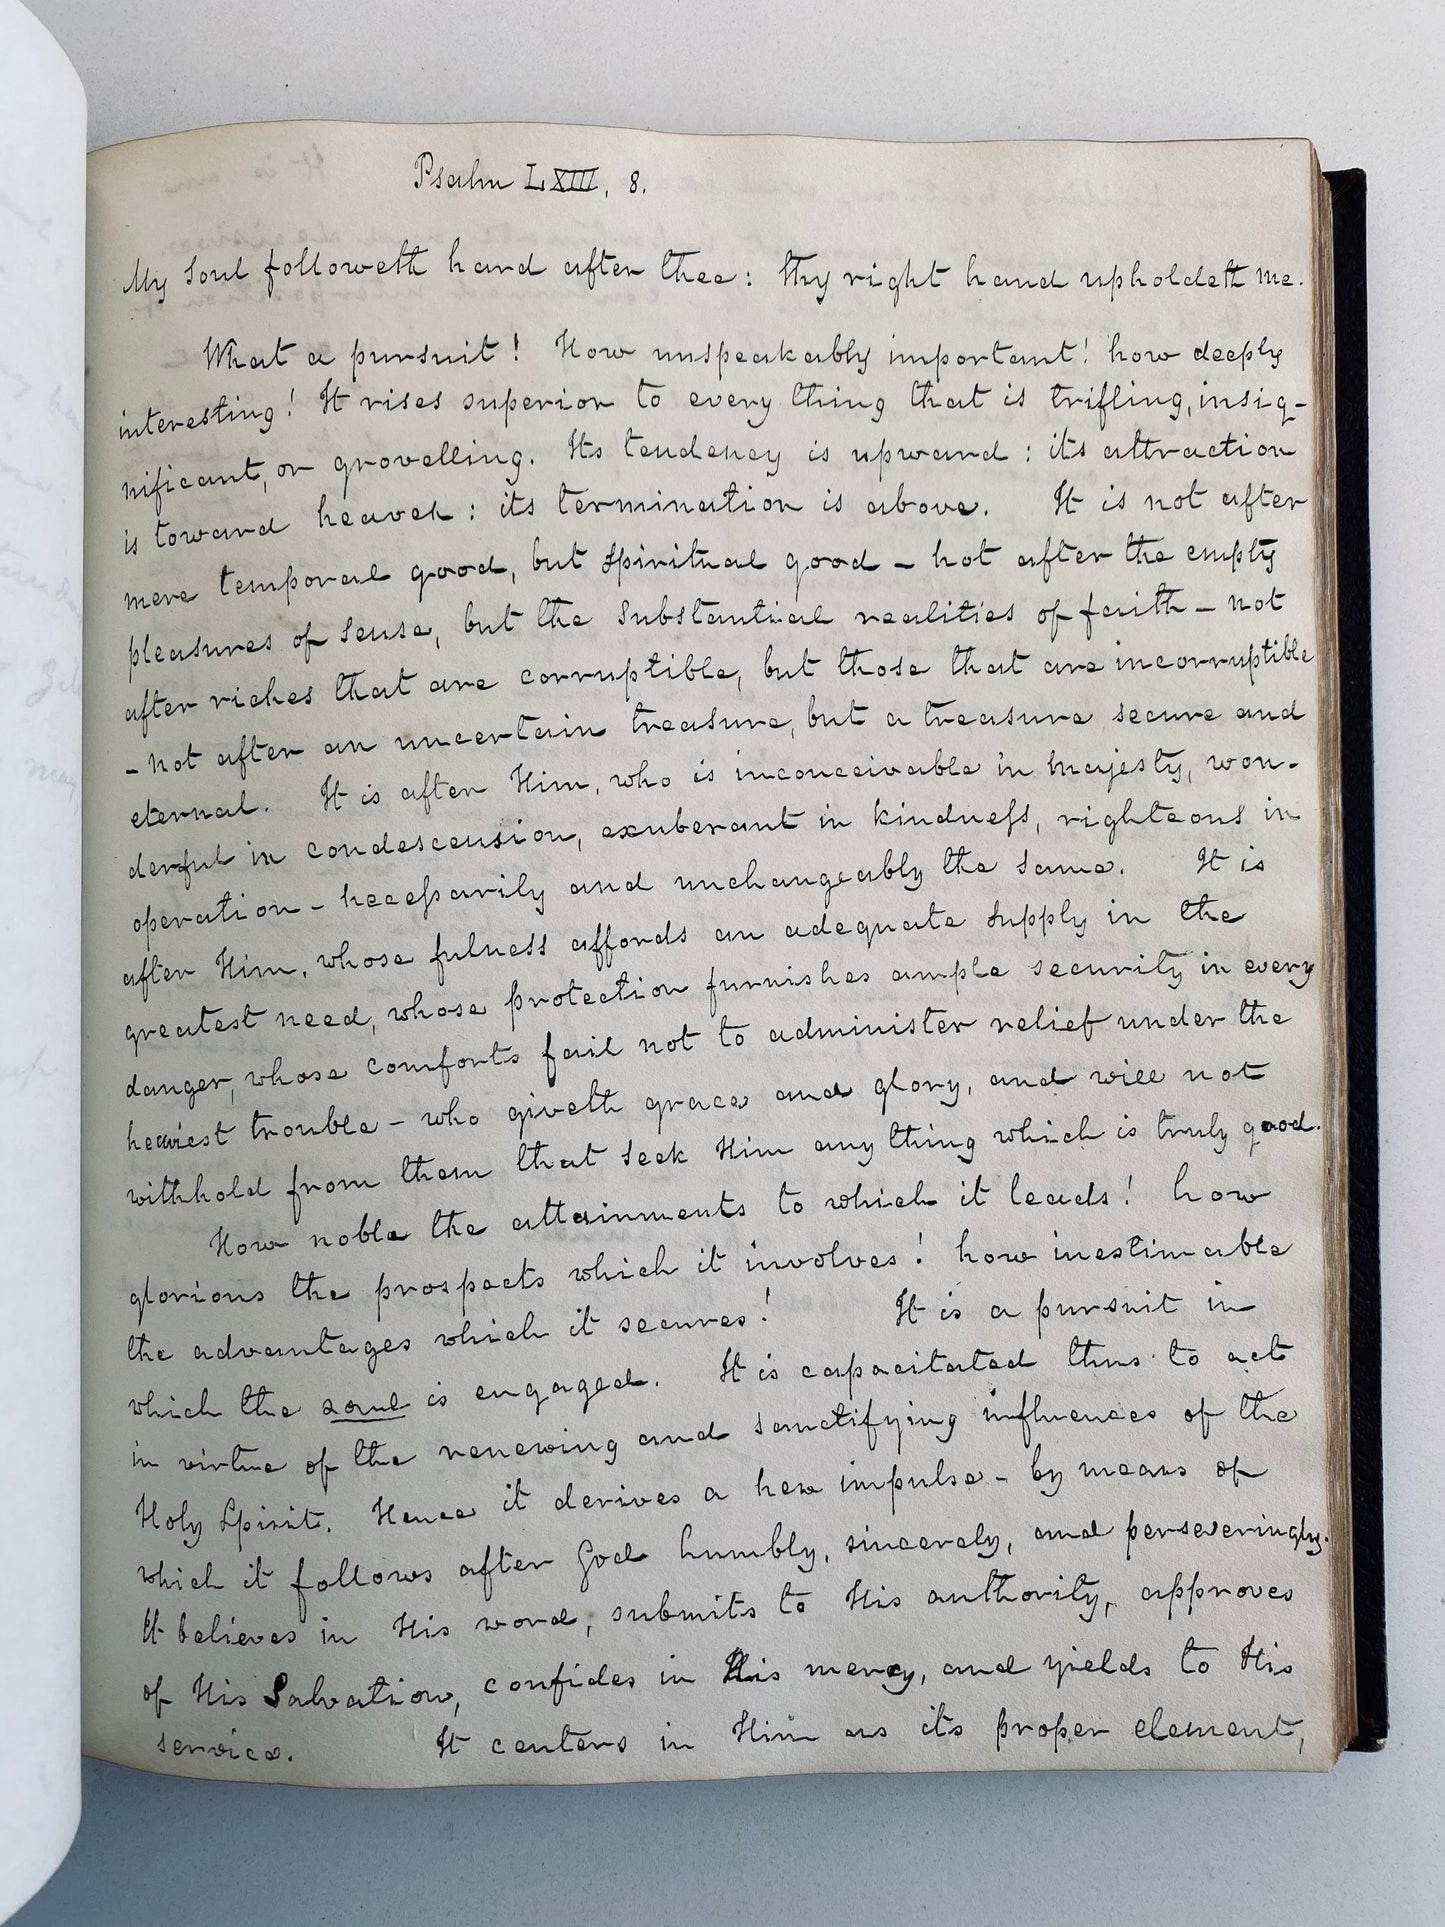 Psalm LXIII, 8.
My Soul followeth hard after thee: thy right hand upholdeth me.
What a pursuit! How unspeakably important! how deeply
interesting! It rises superior to every thing that is trifling, insig-
nificant, or grovelling. Its tendency is upward: its attraction
is toward heaven: its termination is above. It is not after
mere temporal good, but spiritual good - not after the empty
pleasures of sense, but the substantial realities of faith - not
after riches that are corruptible, but those that are incorruptible
- not after an uncertain treasure, but a treasure secure and
eternal. It is after Him, who is inconceivable in majesty, won-
derful in condescension, exuberant in kindneſs, righteous in
operation - neceſsarily and unchangeably the same. It is
after Him, whose fulness affords an adequate supply in the
greatest need, whose protection furnishes ample security in every
danger, whose comforts fail not to administer relief under the
heaviest trouble - who giveth grace and glory, and will not
withhold from them that seek Him any thing which is truly good.
How noble the attainments to which it leads! how
glorious the prospects which it involves! how inestimable
the advantages which it secures! It is a pursuit in
which the soul is engaged. It is capacitated thus to act
in virtue of the renewing and sanctifying influences of the
Holy Spirit. Hence it derives a new impulse - by means of
which it follows after God humbly, sincerely, and perseveringly.
It believes in His word, submits to His authority, approves
of His Salvation, confides in His mercy, and yields to His
service. It centers in Him as its proper element,